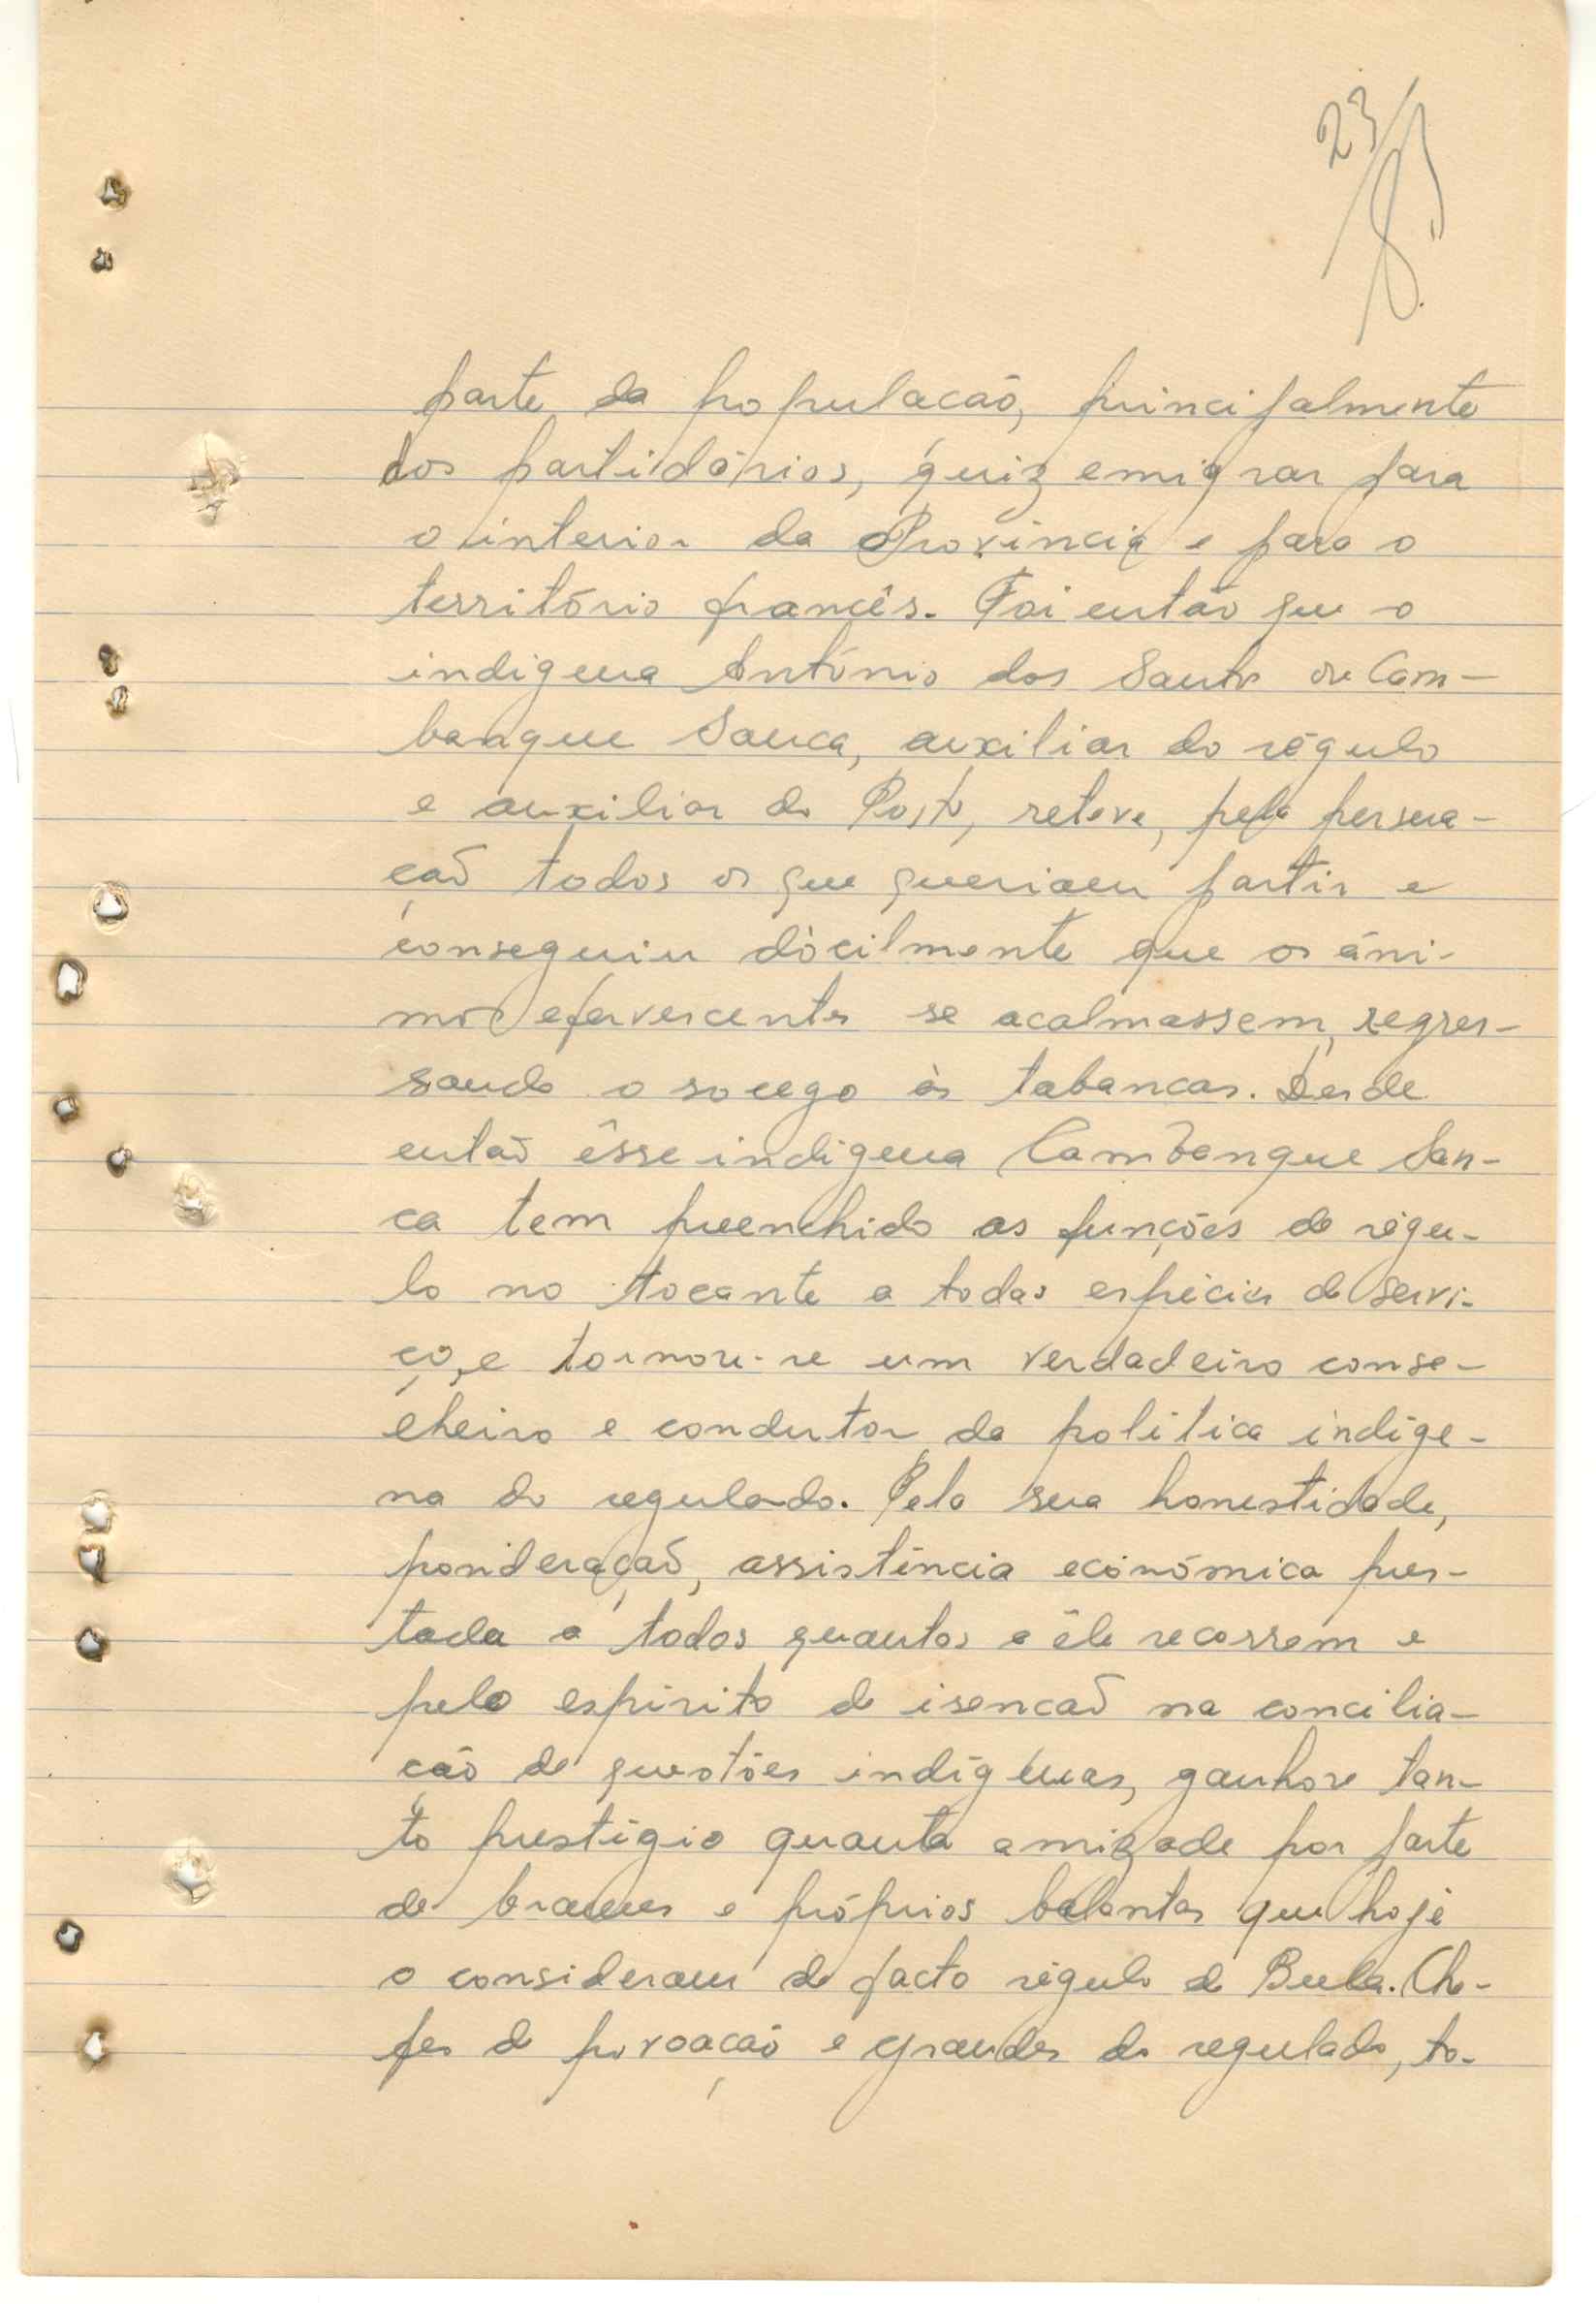 23
parte da populacão, principalmente
dos partidários, quiz emigrar para
o interior da Província e para o
território francês. Foi então que o
indigena António dos Santos ou Cam-
bangue Sanca, auxiliar do régulo
e auxiliar do Posto, reteve, pela persua-
ção todos os que queriam partir e
conseguiu dòcilmente que os âni-
mos efervescentes se acalmassem, regres-
sando o socego às tabancas. Desde
então êsse indigena Cambangue San-
ca tem preenchido as funções de régu-
lo no tocante a todas espécies de servi-
ço, e tornou-se um verdadeiro conse-
lheiro e condutor da politica indige-
na do regulado. Pela sua honestidade,
ponderação, assistência económica pres-
tada a todos quantos a êle recorrem e
pelo espirito de isencão na concilia-
ção de questões indigenas, ganhou tan-
to prestigio quanta amizade por parte
de brames e próprios balantas que hoje
o consideram de facto régulo de Bula. Che-
fes de povoação e grandes do regulado, to-